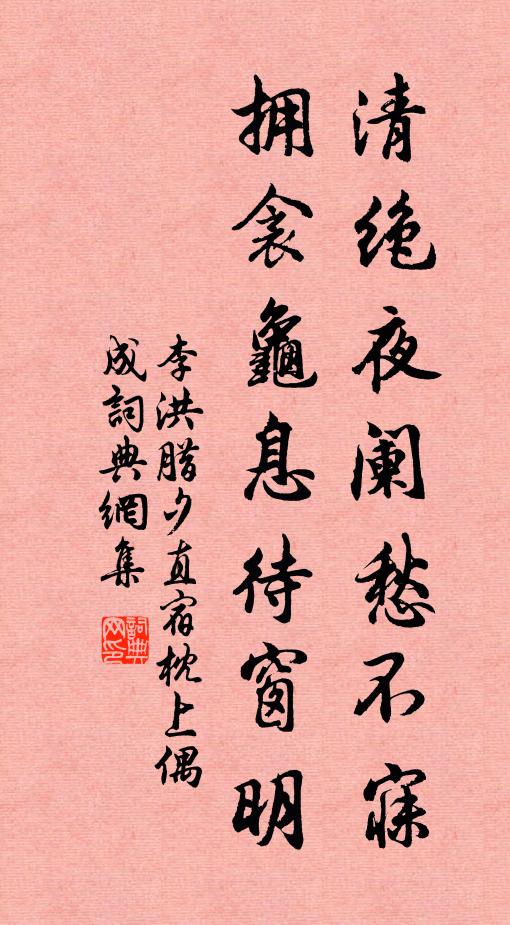 清绝夜阑愁不寐
拥衾龜息待窗明
李洪腊夕直宿枕上偶
成詞典網集
詞典網印